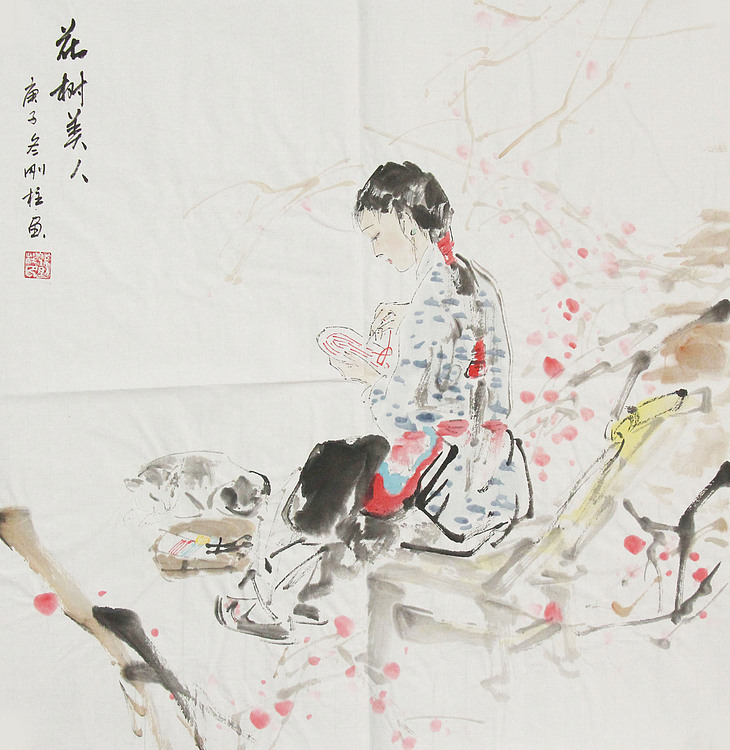 花树美人
庚子冬刚柱画